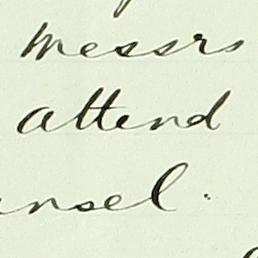 Messrs
attend
nsel.